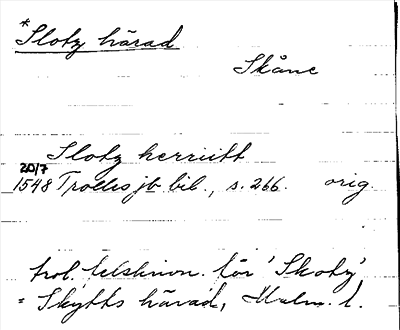 *Sloty härad
Skåne
Sloty herriitt
20/7
1548 Trolles jb bil., s. 266. orig.
trol. felskrivn. för 'Skoty'
= Skytts härad, Malm. l.